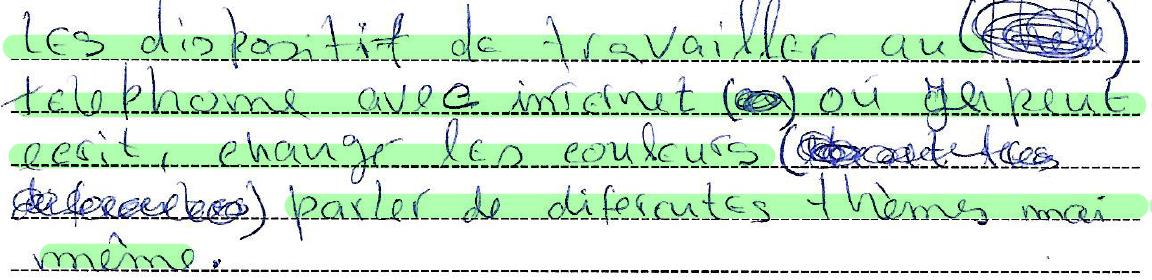 les dispositif de travailler au
telephone avec internet où je peut
ecrit, change les couleurs
parler de diferentes thèmes mai
même.